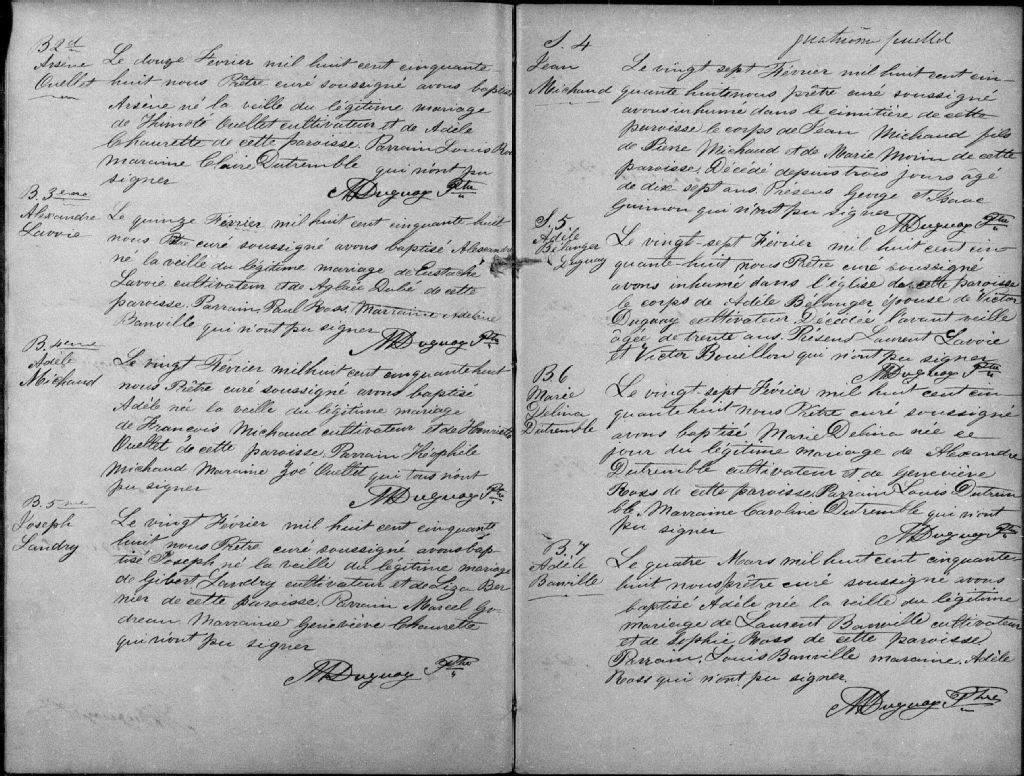 B 2d
Arsène
Ouellet
Le douze Février mil huit cent cinquante-
huit nous Prêtre curé soussigné avons baptisé
Arsène né la veille du légitime mariage
de Thimoté Ouellet cultivateur et de Adèle
Chaurette de cette paroisse. Parrain Louis Ross
maraine Claire Dutremble qui n'ont pu
signer
M Duguay Ptre
B. 3eme
Alexandre
Lavoie
Le quinze Février mil huit cent cinquante huit
nous Ptre curé soussigné avons baptisé Alexandre
né la veille du légitime mariage de Eustache
Lavoie cultivateur et de Aglaée Dubé de cette
paroisse. Parrain, Paul Ross, Marraine Adeline
Banville qui n'ont pu signer
M Duguay Ptre
B. 4eme
Adèle
Michaud
Le vingt Février mil huit cent cinquante huit
nous Prêtre curé soussigné avons baptisé
Adèle née la veille du légitime mariage
de François Michaud cultivateur et de Henriette
Ouellet de cette paroisse. Parrain Théophile
Michaud Maraine Zoé Ouellet qui tous n'ont
pu signer
M Duguay Ptre
B. 5me
Joseph
Landry
Le vingt Février mil huit cent cinquante
huit nous Prêtre curé soussigné avons bap-
tisé Joseph, né la veille du légitime mariage
de Gibert Landry cultivateur et de Liza Ber-
nier de cette paroisse. Parrain Marcel Go-
dreau Marraine Geneviève Chaurette
qui n'ont pu signer
M Duguay Ptre
quatrième feuillet
S. 4
Jean
Michaud
Le vingt sept Février mil huit cent cin-
quante huit nous prêtre curé soussigné
avons inhumé dans le cimitière de cette
paroisse le corps de Jean Michaud fils
de Pierre Michaud et de Marie Morin de cette
paroisse. Décédé depuis trois jours âgé
de dix sept ans. Présens George et Isaac
Guimon qui n'ont pu signer
M Duguay Ptre
S. 5
Adèle
Bélanger
Duguay
Le vingt-sept Février mil huit cent cin-
quante-huit nous Prêtre curé soussigné
avons inhumé dans l'église de cette paroisse
le corps de Adèle Bélanger épouse de Victor
Duguay cultivateur. Décédée l'avant veille
âgée de trente ans. Présens Laurent Lavoie
et Victor Bouillon qui n'ont pu signer
M Duguay Ptre
B. 6
Marie
Delina
Dutremble
Le vingt-sept Février mil huit cent cin-
quante-huit nous Prêtre curé soussigné
avons baptisé Marie Delina née ce
jour du légitime mariage de Alexandre
Dutremble cultivateur et de Geneviève
Ross de cette paroisse. Parrain Louis Dutrem-
ble. Marraine Caroline Dutremble qui n'ont
pu signer
M Duguay Ptre
B. 7
Adèle
Banville
Le quatre Mars mil huit cent cinquante-
huit nous prêtre curé soussigné avons
baptisé Adèle née la veille du légitime
mariage de Laurent Banville cultivateur
et de Sophie Ross de cette paroisse
Parrain, Louis Banville maraine, Adèle
Ross qui n'ont pu signer
M Duguay Ptre